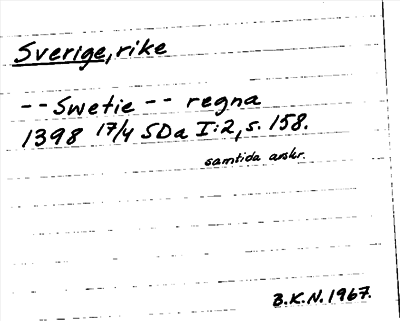 Sverige, rike
-- Swetie -- regna
1398 17/4 SDa I:2, s. 158.
samtida avskr.
B.K.N. 1967.